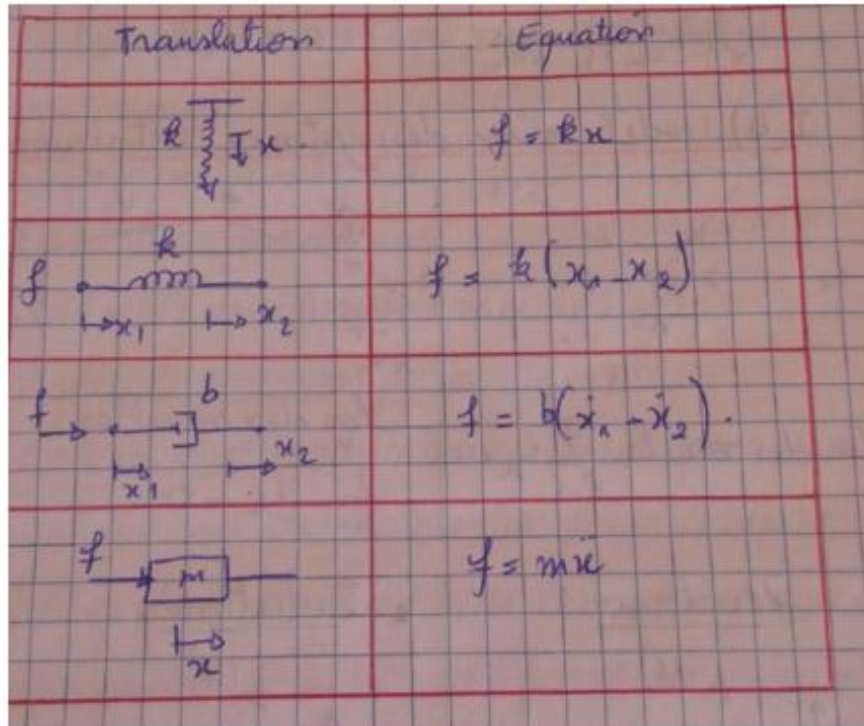 Translation Equation
k x f = kx
k
f x₁ x₂ f = k(x₁ - x₂)
b
f x₁ x₂ f = b(ẋ₁ - ẋ₂).
f m f = mẍ
x